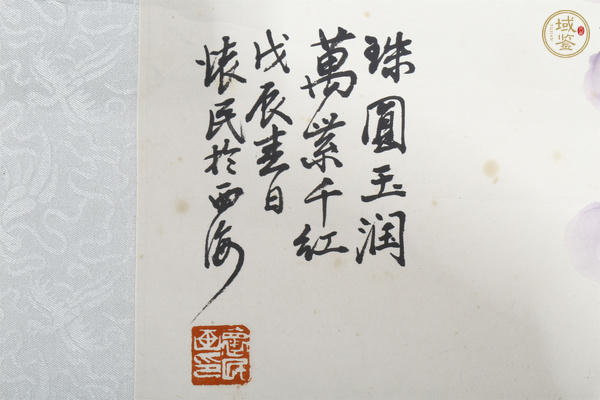 珠圓玉润
萬紫千红
戊辰春日
懷民於西海
域鉴